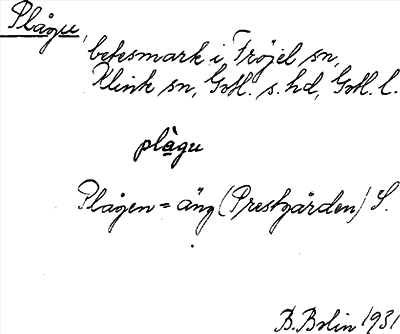 Plågu,
betesmark i Fröjel sn,
Klink sn, Gotl. s. hd, Gotl. l.
plàgu
Plågen = äng (Prestgården) S.
B. Bolin 1931